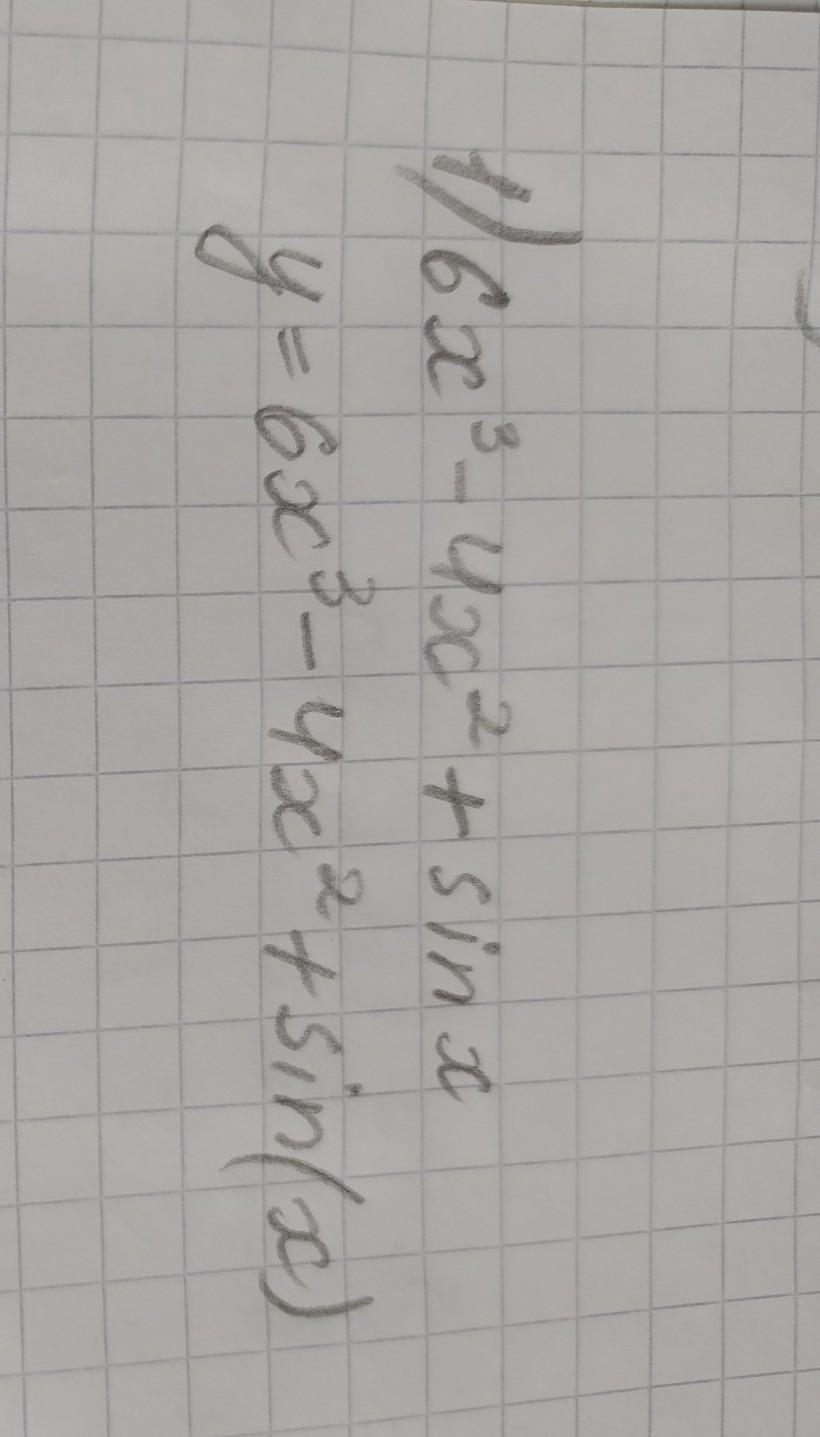 1) 6x³ - 4x² + sin x
y = 6x³ - 4x² + sin(x)